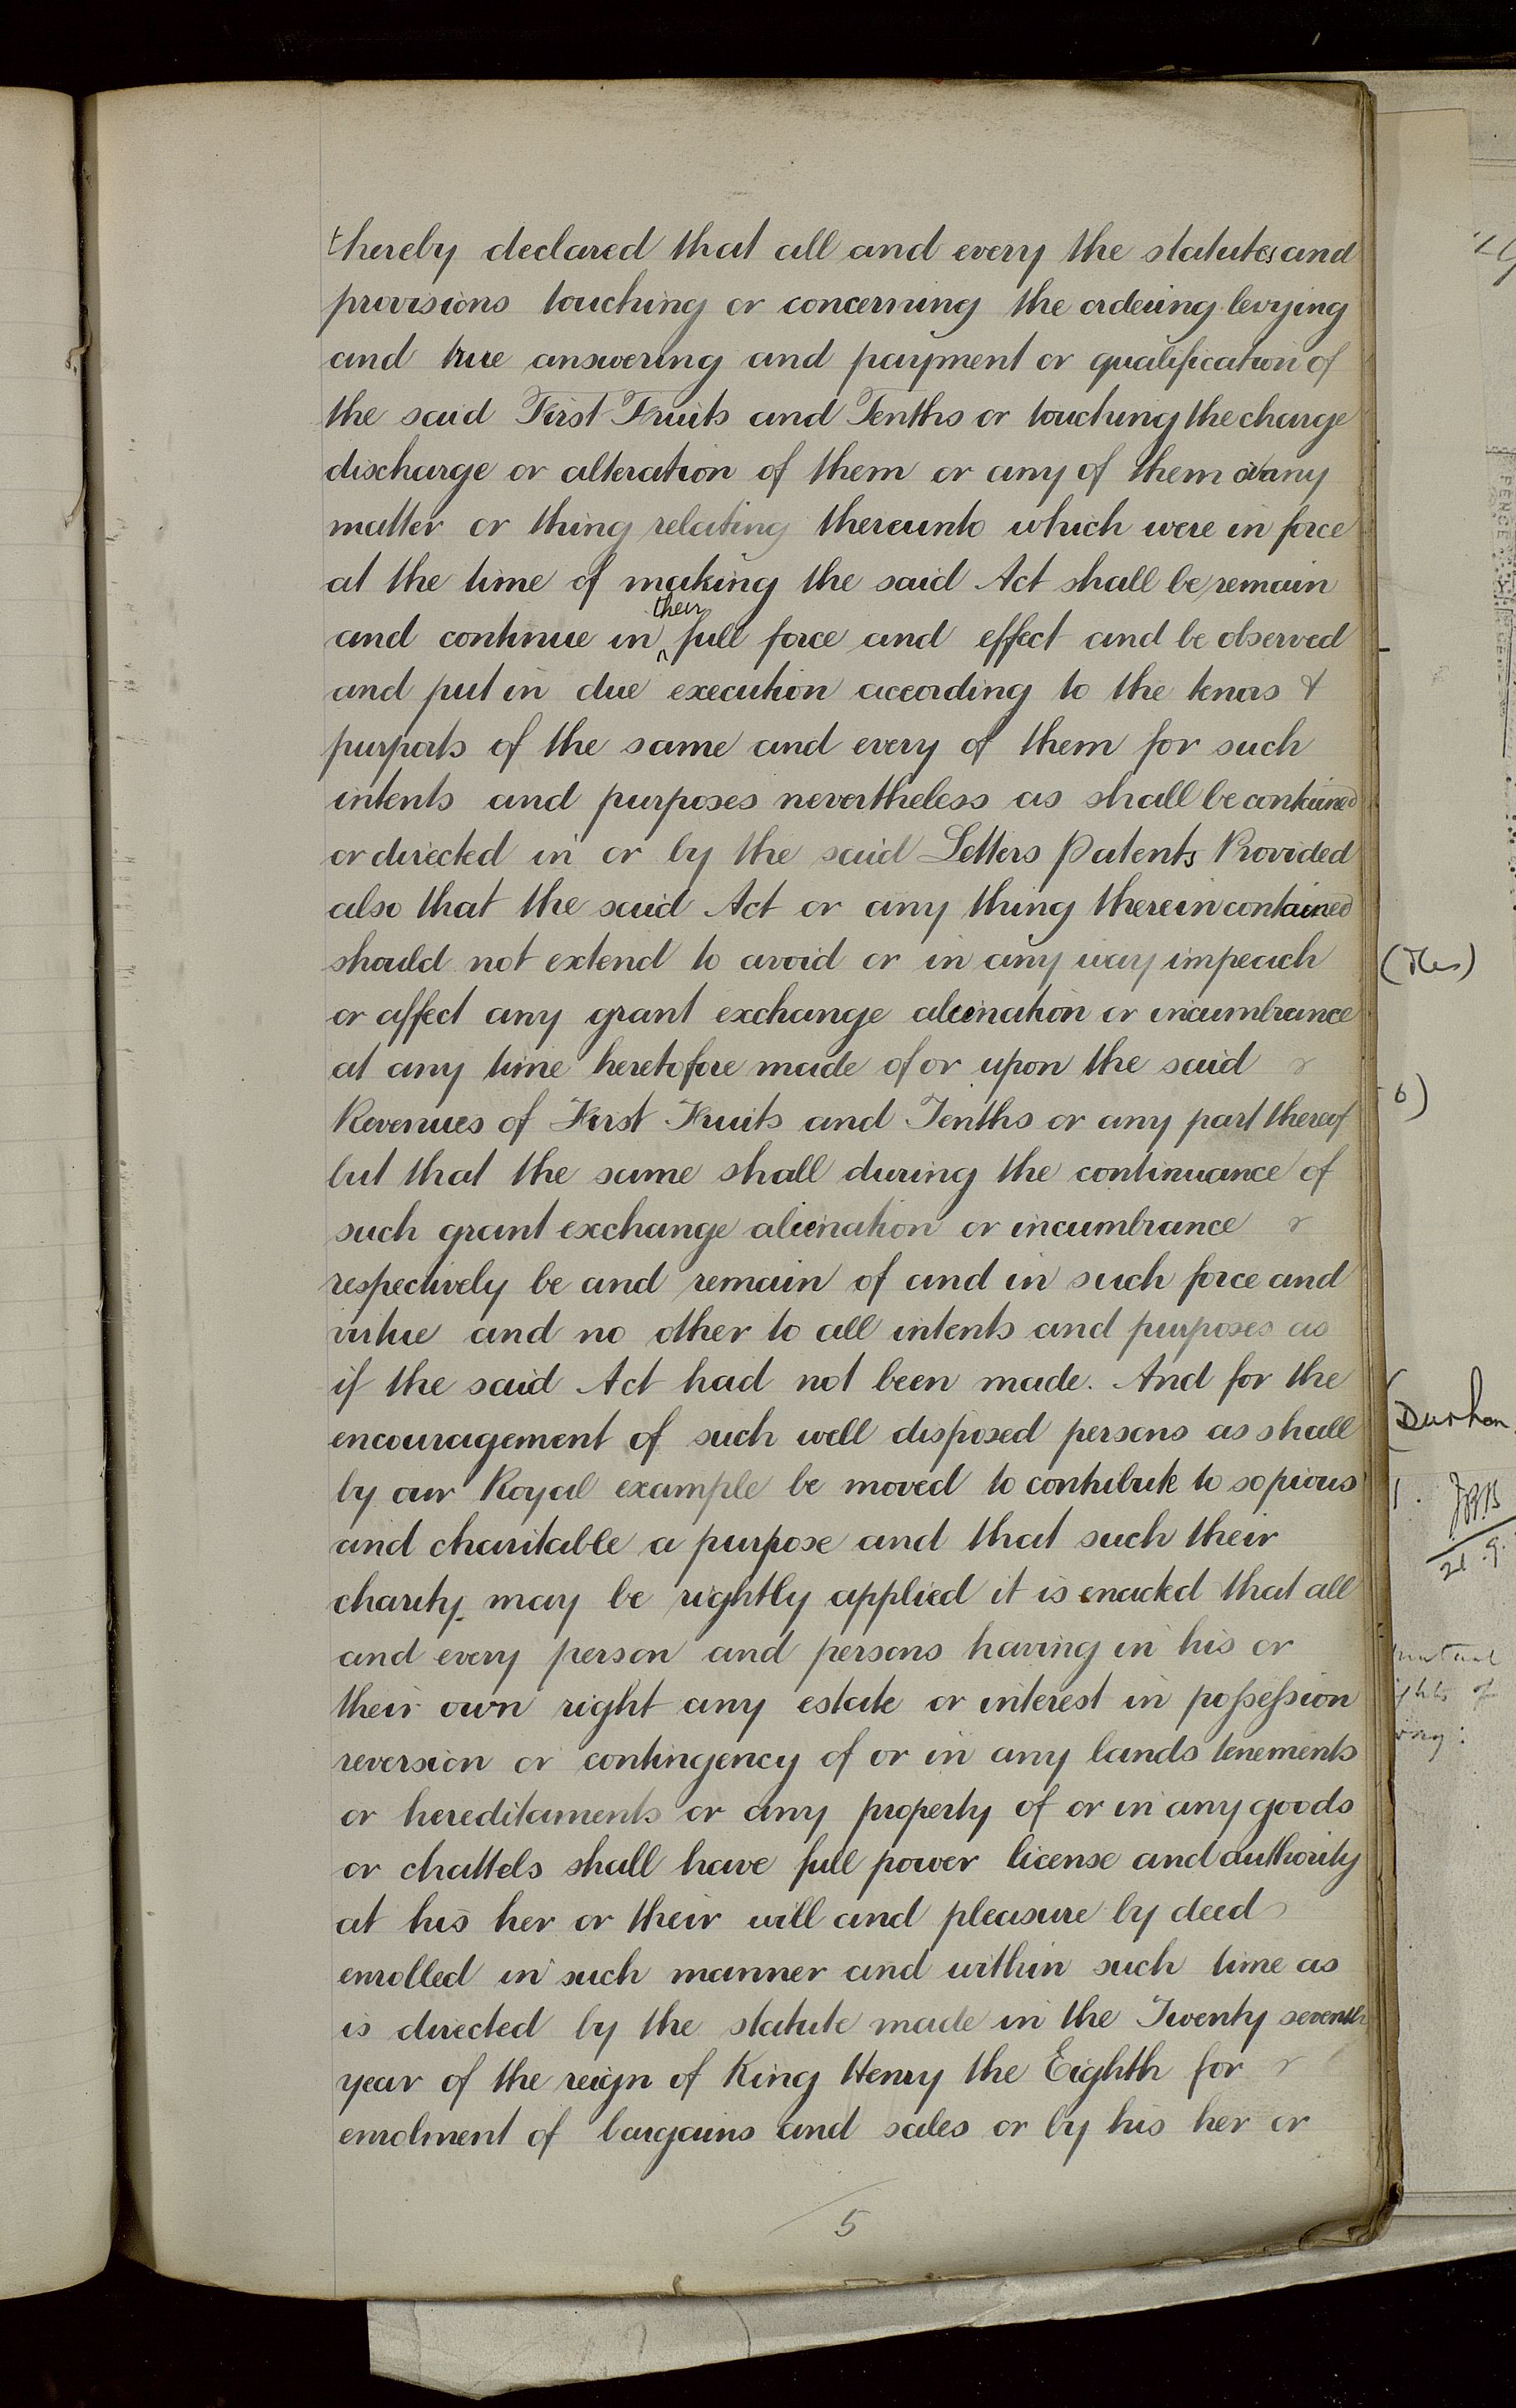 thereby declared that all and every the statutes and
provisions touching or concerning the ordering levying
and true answering and payment or qualification of
the said First Fruits and Tenths or touching the charge
discharge or alteration of them or any of them or any
matter or thing relating thereunto which were in force
at the time of making the said Act shall be remain
and continue in their full force and effect and be observed
and put in due execution according to the tenors &
purports of the same and every of them for such
intents and purposes nevertheless as shall be contained
or directed in or by the said Letters Patents Provided
also that the said Act or any thing therein contained
should not extend to avoid or in any way impeach
or affect any grant exchange alienation or incumbrance
at any time heretofore made of or upon the said
Revenues of First Fruits and Tenths or any part thereof
but that the same shall during the continuance of
such grant exchange alienation or incumbrance
respectively be and remain of and in such force and
virtue and no other to all intents and purposes as
if the said Act had not been made. And for the
encouragement of such well disposed persons as shall
by our Royal example be moved to contribute to so pious
and charitable a purpose and that such their
charity may be rightly applied it is enacted that all
and every person and persons having in his or
their own right any estate or interest in possession
reversion or contingency of or in any lands tenements
or hereditaments or any property of or in any goods
or chattels shall have full power license and authority
at his her or their will and pleasure by deed
enrolled in such manner and within such time as
is directed by the statute made in the Twenty seventh
year of the reign of King Henry the Eighth for
enrolment of bargains and sales or by his her or
5